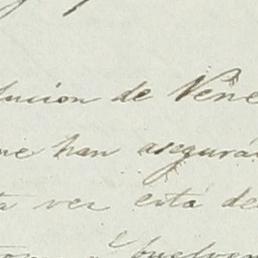 lucion de Vene
me han asegura
ta vez está de
buelven